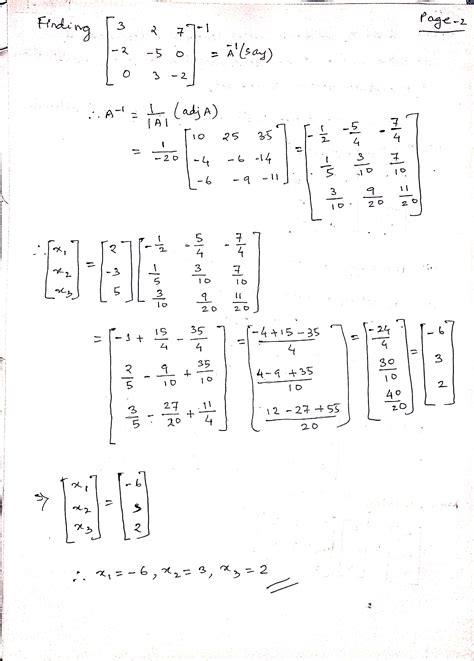 Page-2
Finding [3 2 7; -2 -5 0; 0 3 -2]^-1 = A^-1 (say)
∴ A^-1 = 1/|A| (adj A)
= 1/-20 [10 25 35; -4 -6 -14; -6 -9 -11] = [-1/2 -5/4 -7/4; 1/5 3/10 7/10; 3/10 9/20 11/20]
∴ [x₁; x₂; x₃] = [2; -3; 5] [-1/2 -5/4 -7/4; 1/5 3/10 7/10; 3/10 9/20 11/20]
= [-1 + 15/4 - 35/4; 2/5 - 9/10 + 35/10; 3/5 - 27/20 + 11/4] = [(-4+15-35)/4; (4-9+35)/10; (12-27+55)/20] = [-24/4; 30/10; 40/20] = [-6; 3; 2]
⇒ [x₁; x₂; x₃] = [-6; 3; 2]
∴ x₁ = -6, x₂ = 3, x₃ = 2